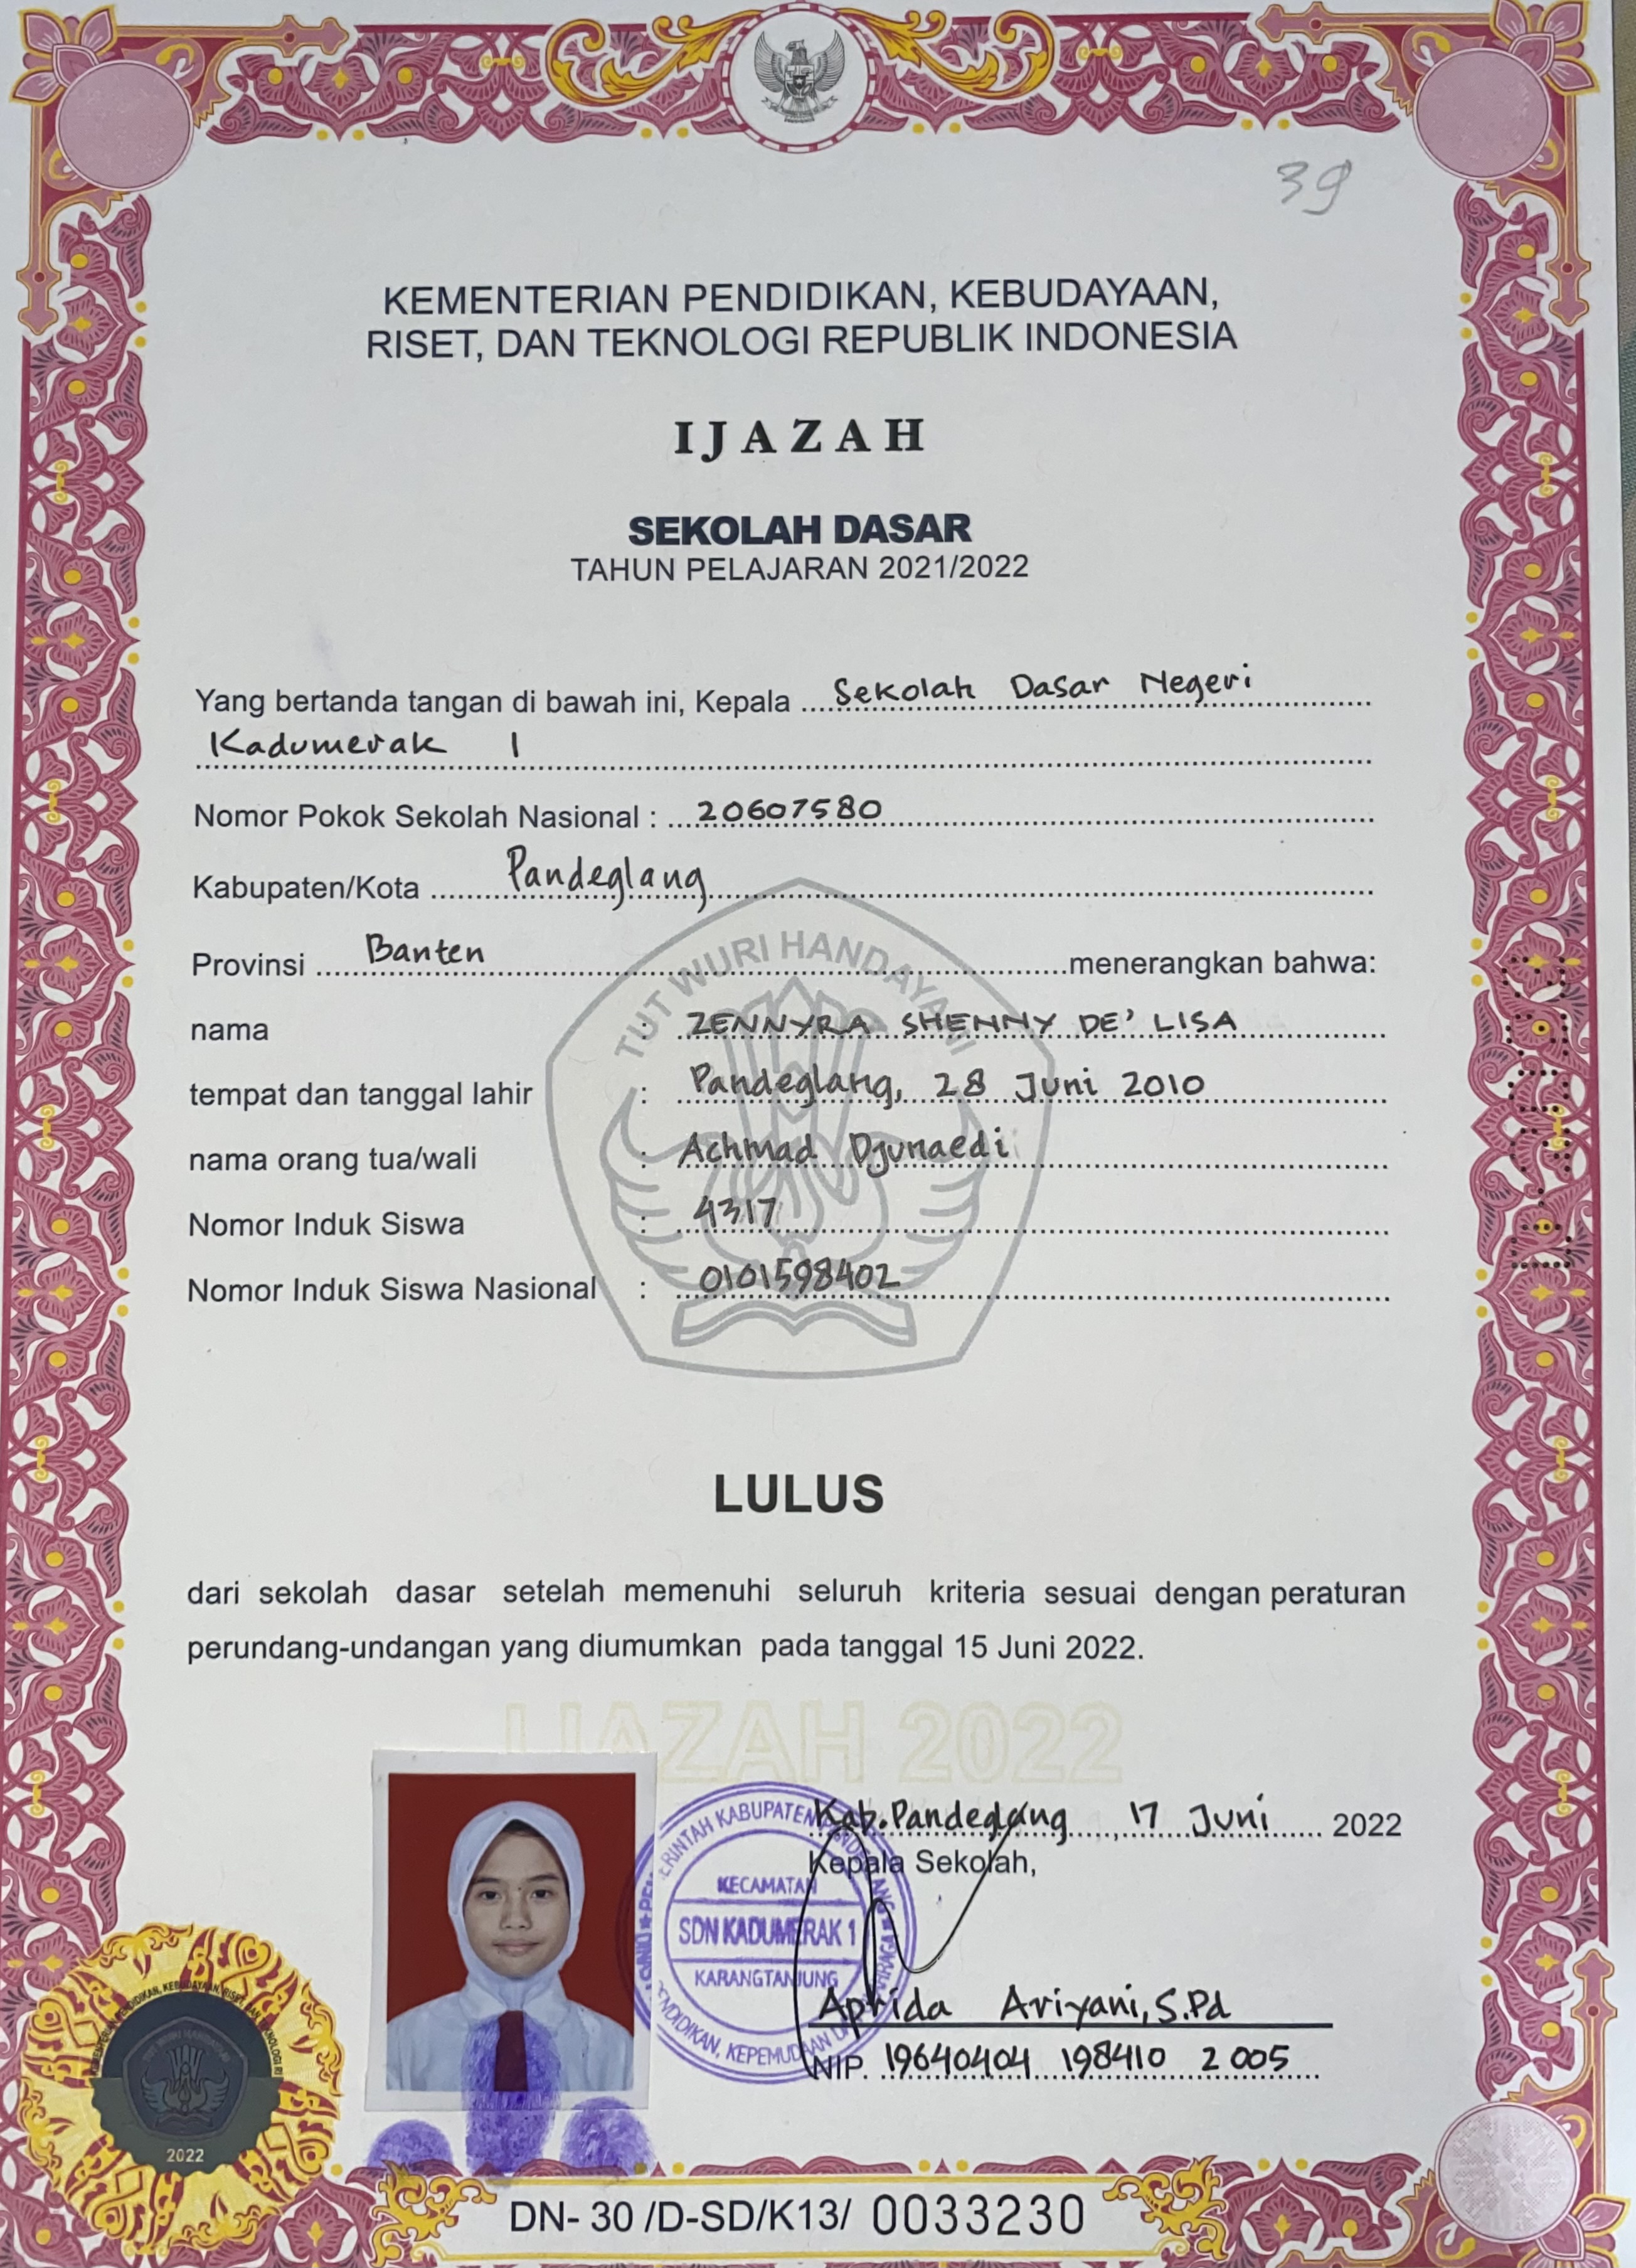 39
KEMENTERIAN PENDIDIKAN, KEBUDAYAAN,
RISET, DAN TEKNOLOGI REPUBLIK INDONESIA
IJAZAH
SEKOLAH DASAR
TAHUN PELAJARAN 2021/2022
Yang bertanda tangan di bawah ini, Kepala Sekolah Dasar Negeri
Kadumerak 1
Nomor Pokok Sekolah Nasional : 20607580
Kabupaten/Kota Pandeglang
Provinsi Banten menerangkan bahwa:
TUT WURI HANDAYANI
nama : ZENNYRA SHENNY DE' LISA
tempat dan tanggal lahir : Pandeglang, 28 Juni 2010
nama orang tua/wali : Achmad Djunaedi
Nomor Induk Siswa : 4317
Nomor Induk Siswa Nasional : 0101598402
LULUS
dari sekolah dasar setelah memenuhi seluruh kriteria sesuai dengan peraturan
perundang-undangan yang diumumkan pada tanggal 15 Juni 2022.
IJAZAH 2022
Kab.Pandeglang, 17 Juni 2022
Kepala Sekolah,
KECAMATAN
SDN KADUMERAK 1
KARANGTANJUNG
Aprida Ariyani, S.Pd
NIP. 19640404 198410 2 005
2022
DN- 30 /D-SD/K13/ 0033230